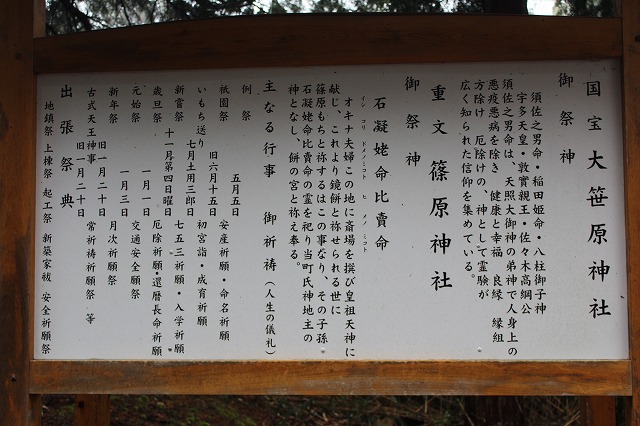 国宝 大笹原神社
御祭神
須佐之男命・稲田姫命・八柱御子神
宇多天皇・敦實親王・佐々木高綱公
須佐之男命は、天照大御神の弟神で人身上の
悪疫悪病を除き 健康と幸福 良縁 縁組
方除け 厄除けの、神として霊験が
広く知られた信仰を集めている。
重文 篠原神社
御祭神
石凝姥命比賣命
イシ コリ ドメノミコト ヒ メノ ミコト
オキナ夫婦この地に斎場を撰び皇祖天神に
献じ、これより鏡餅と祢せられる世に
篠原もちと祢するはこの事なり、その子孫
石凝姥命比賣命の霊を祀り当町氏神地主の
神となし、餅の宮と祢え奉る。
主なる行事 御祈祷(人生の儀礼)
例祭 五月五日 安産祈願・命名祈願
祇園祭 旧六月十五日 初宮詣・成育祈願
いもち送り 七月土用三郎日 七五三祈願・入学祈願
新嘗祭 十一月第四日曜日 厄除祈願・還暦長命祈願
歳旦祭 一月一日 交通安全祈願
元始祭 一月三日 月次祈願祭
新年祭 旧一月二十日 常祈祷祈願祭 等
古式天王神事 旧一月二十日
出張祭典
地鎮祭 上棟祭 起工祭 新築家祓 安全祈願祭